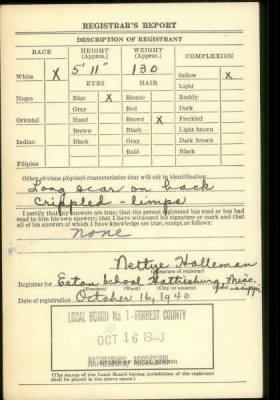 REGISTRAR'S REPORT
DESCRIPTION OF REGISTRANT
RACE HEIGHT (Approx.) WEIGHT (Approx.) COMPLEXION
White X 5' 11" 130 Sallow X
EYES HAIR Light
Negro Blue X Blonde Ruddy
Gray Red Dark
Oriental Hazel Brown X Freckled
Brown Black Light brown
Indian Black Gray Dark brown
Bald Black
Filipino
Other obvious physical characteristics that will aid in identification
Long scar on back
Crippled - limps
I certify that my answers are true; that the person registered has read or has had
read to him his own answers; that I have witnessed his signature or mark and that
all of his answers of which I have knowledge are true, except as follows:
none
Nettye Halleman
(Signature of registrar)
Registrar for Eaton School Hattiesburg, Miss-
issippi
(Precinct) (Ward) (City or county) (State)
Date of registration October 16, 1940
LOCAL BOARD No. 1-FORREST COUNTY
OCT 16 1940
HATTIESBURG, MISSISSIPPI
(The stamp of the Local Board having jurisdiction of the registrant
shall be placed in the above space.)